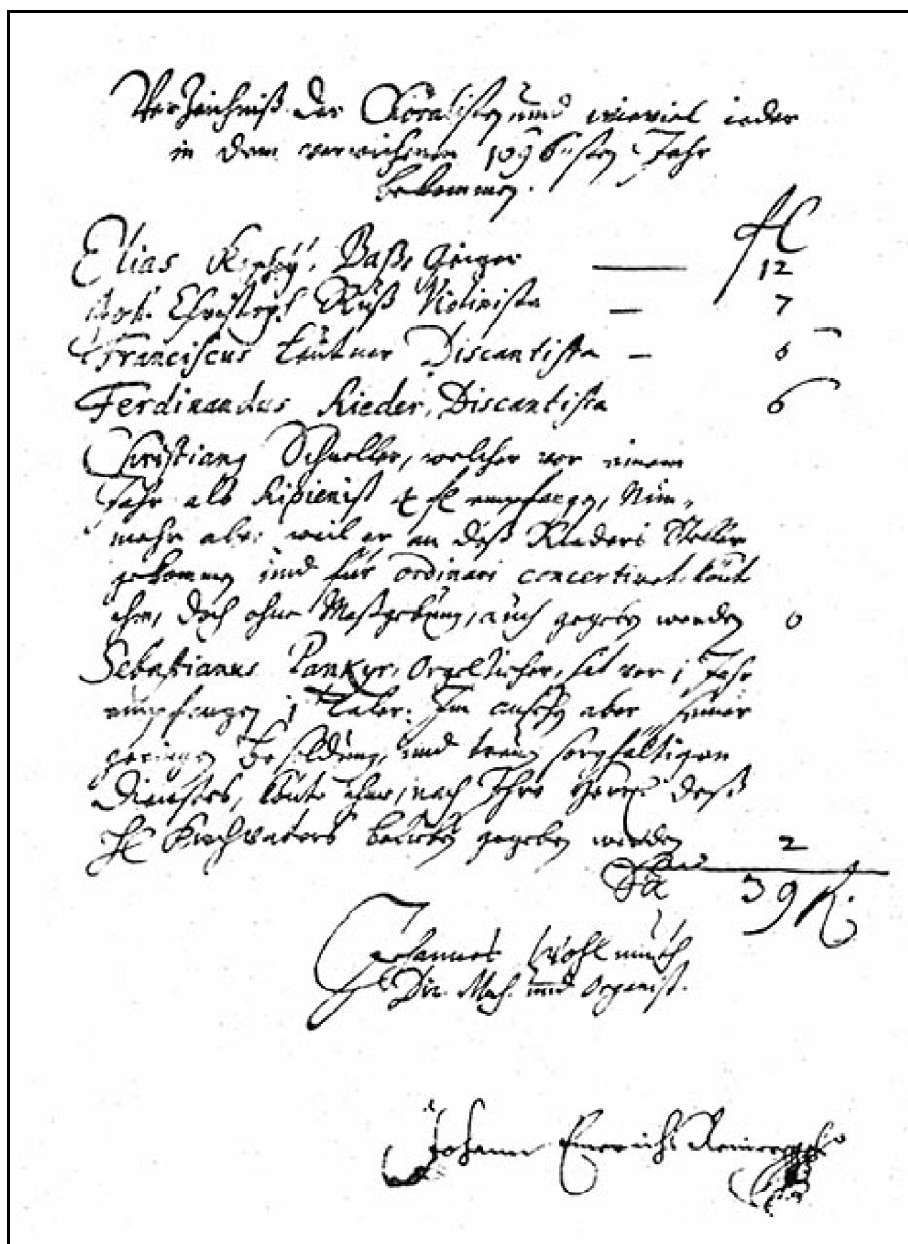 Verzeichniß der Choralisten und wieviel ieder
in dem verwichenen 1696isten Jahr
bekommen.
fl
Elias Baß Geiger — 12
Joh. Christoph Ruß Violinista — 7
Franciscus Leütner Discantista — 6
Ferdinandus Rieder, Discantista 6
Christiang Schneller, welcher vor einem
Jahr als Ripienist 4 fl empfangen, Nun-
mehr aber weil er an deß Rieders Stelle
gekommen und für ordinari concertiret, könt
ihm, doch ohne Maßgebung, auch gegeben werden 6
Sebastianus Pankyr, Orgeltreter, hat vor 1 Jahr
empfangen 1 Taler: Im ansehen aber seiner
geringen besoldung, und treüen sorgfältigen
Dienstes, könte ihme, nach Ihro Herrn deß
H Kirchvaters belieben gegeben werden 2
Sa 39 fl.
Johannes Wohlmuth
Dir. Mus. und Organist.
Johann Emerich